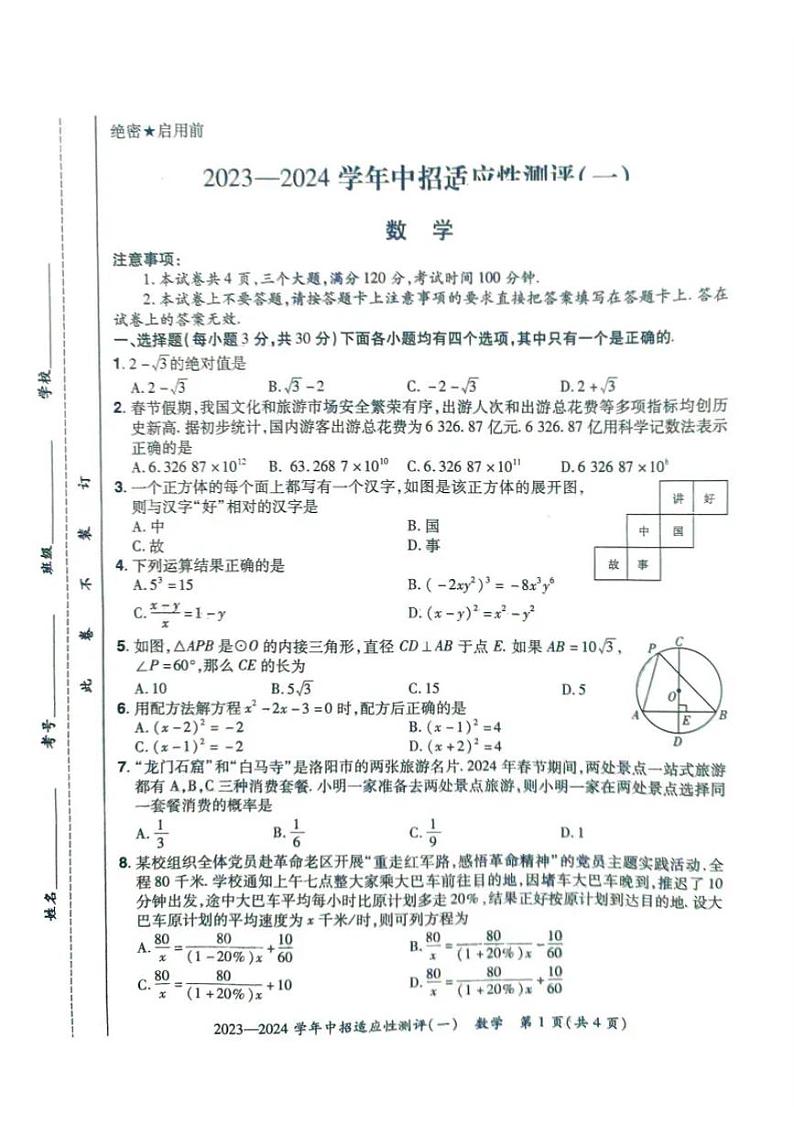 绝密★启用前
2023—2024 学年中招适应性测评(一)
数 学
注意事项:
1. 本试卷共 4 页,三个大题,满分 120 分,考试时间 100 分钟.
2. 本试卷上不要答题,请按答题卡上注意事项的要求直接把答案填写在答题卡上. 答在
试卷上的答案无效.
一、选择题(每小题 3 分,共 30 分)下面各小题均有四个选项,其中只有一个是正确的.
1. 2-√3的绝对值是
A. 2-√3 B. √3-2 C. -2-√3 D. 2+√3
2. 春节假期,我国文化和旅游市场安全繁荣有序,出游人次和出游总花费等多项指标均创历
史新高. 据初步统计,国内游客出游总花费为 6 326. 87 亿元. 6 326. 87 亿用科学记数法表示
正确的是
A. 6. 326 87×10¹² B. 63. 268 7×10¹⁰ C. 6. 326 87×10¹¹ D. 6 326 87×10⁸
3. 一个正方体的每个面上都写有一个汉字,如图是该正方体的展开图,
则与汉字“好”相对的汉字是
A. 中 B. 国
C. 故 D. 事
讲 好
中 国
故 事
4. 下列运算结果正确的是
A. 5³=15 B. (-2xy²)³=-8x³y⁶
C. (x-y)/x=1-y D. (x-y)²=x²-y²
5. 如图,△APB 是⊙O 的内接三角形,直径 CD⊥AB 于点 E. 如果 AB=10√3,
∠P=60°,那么 CE 的长为
A. 10 B. 5√3 C. 15 D. 5
P C
O
A E B
D
6. 用配方法解方程 x²-2x-3=0 时,配方后正确的是
A. (x-2)²=-2 B. (x-1)²=4
C. (x-1)²=-2 D. (x+2)²=4
7. “龙门石窟”和“白马寺”是洛阳市的两张旅游名片. 2024 年春节期间,两处景点一站式旅游
都有 A,B,C 三种消费套餐. 小明一家准备去两处景点旅游,则小明一家在两处景点选择同
一套餐消费的概率是
A. 1/3 B. 1/6 C. 1/9 D. 1
8. 某校组织全体党员赴革命老区开展“重走红军路,感悟革命精神”的党员主题实践活动. 全
程 80 千米. 学校通知上午七点整大家乘大巴车前往目的地,因堵车大巴车晚到,推迟了 10
分钟出发,途中大巴车平均每小时比原计划多走 20%,结果正好按原计划到达目的地. 设大
巴车原计划的平均速度为 x 千米/时,则可列方程为
A. 80/x=80/((1-20%)x)+10/60 B. 80/x=80/((1+20%)x)-10/60
C. 80/x=80/((1+20%)x)+10 D. 80/x=80/((1+20%)x)+10/60
2023—2024 学年中招适应性测评(一) 数学 第 1 页(共 4 页)
学校
班级
考号
姓名
此 卷 不 装 订